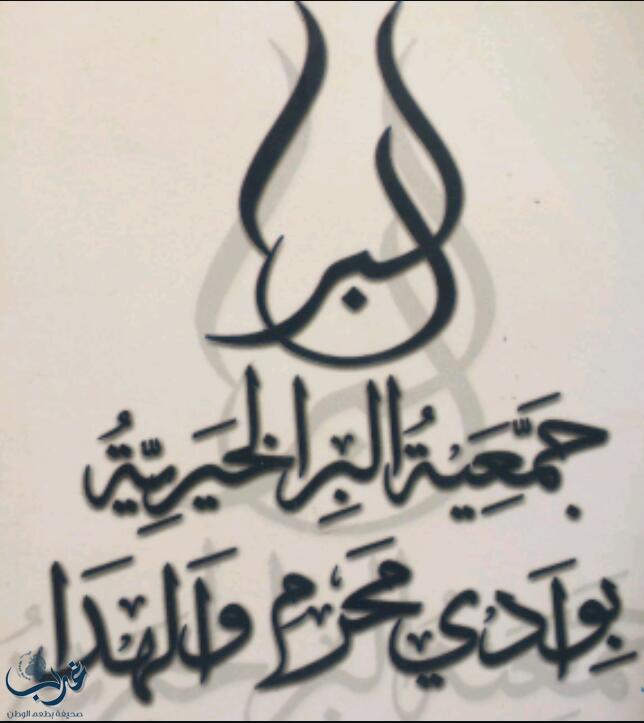 البر
جَمْعِيَةُ البِرِ الخَيرِيَّةُ
بِوَادي مَحْرَم وَالهَدَا
غرب
صحيفة بطعم الوطن